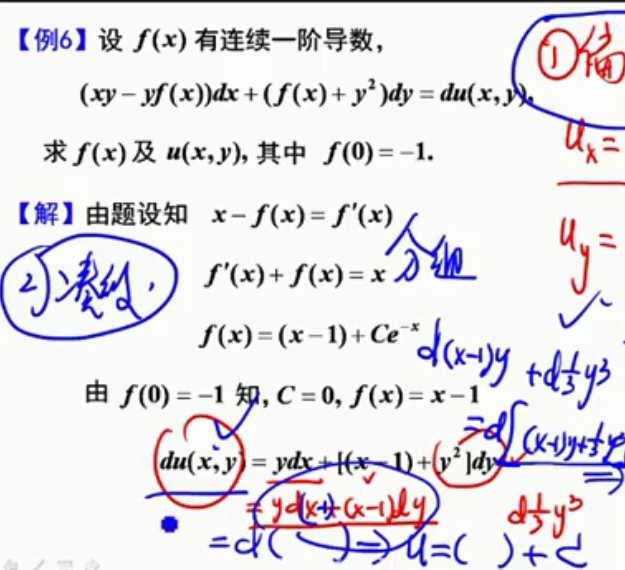 【例6】设 f(x) 有连续一阶导数，
(xy − yf(x))dx + (f(x) + y²)dy = du(x, y),
① 偏
求 f(x) 及 u(x, y), 其中 f(0) = −1.
u_x =
【解】由题设知 x − f(x) = f′(x)
u_y =
分组
2) 凑微.
f′(x) + f(x) = x
f(x) = (x − 1) + Ce⁻ˣ
d(x-1)y + d⅓y³
由 f(0) = −1 知, C = 0, f(x) = x − 1
= d[(x-1)y + ⅓y³
du(x, y) = ydx + [(x − 1) + y²]dy
⇒
= yd(x-1) + (x-1)dy
d⅓y³
= d( ) ⇒ u = ( ) + C